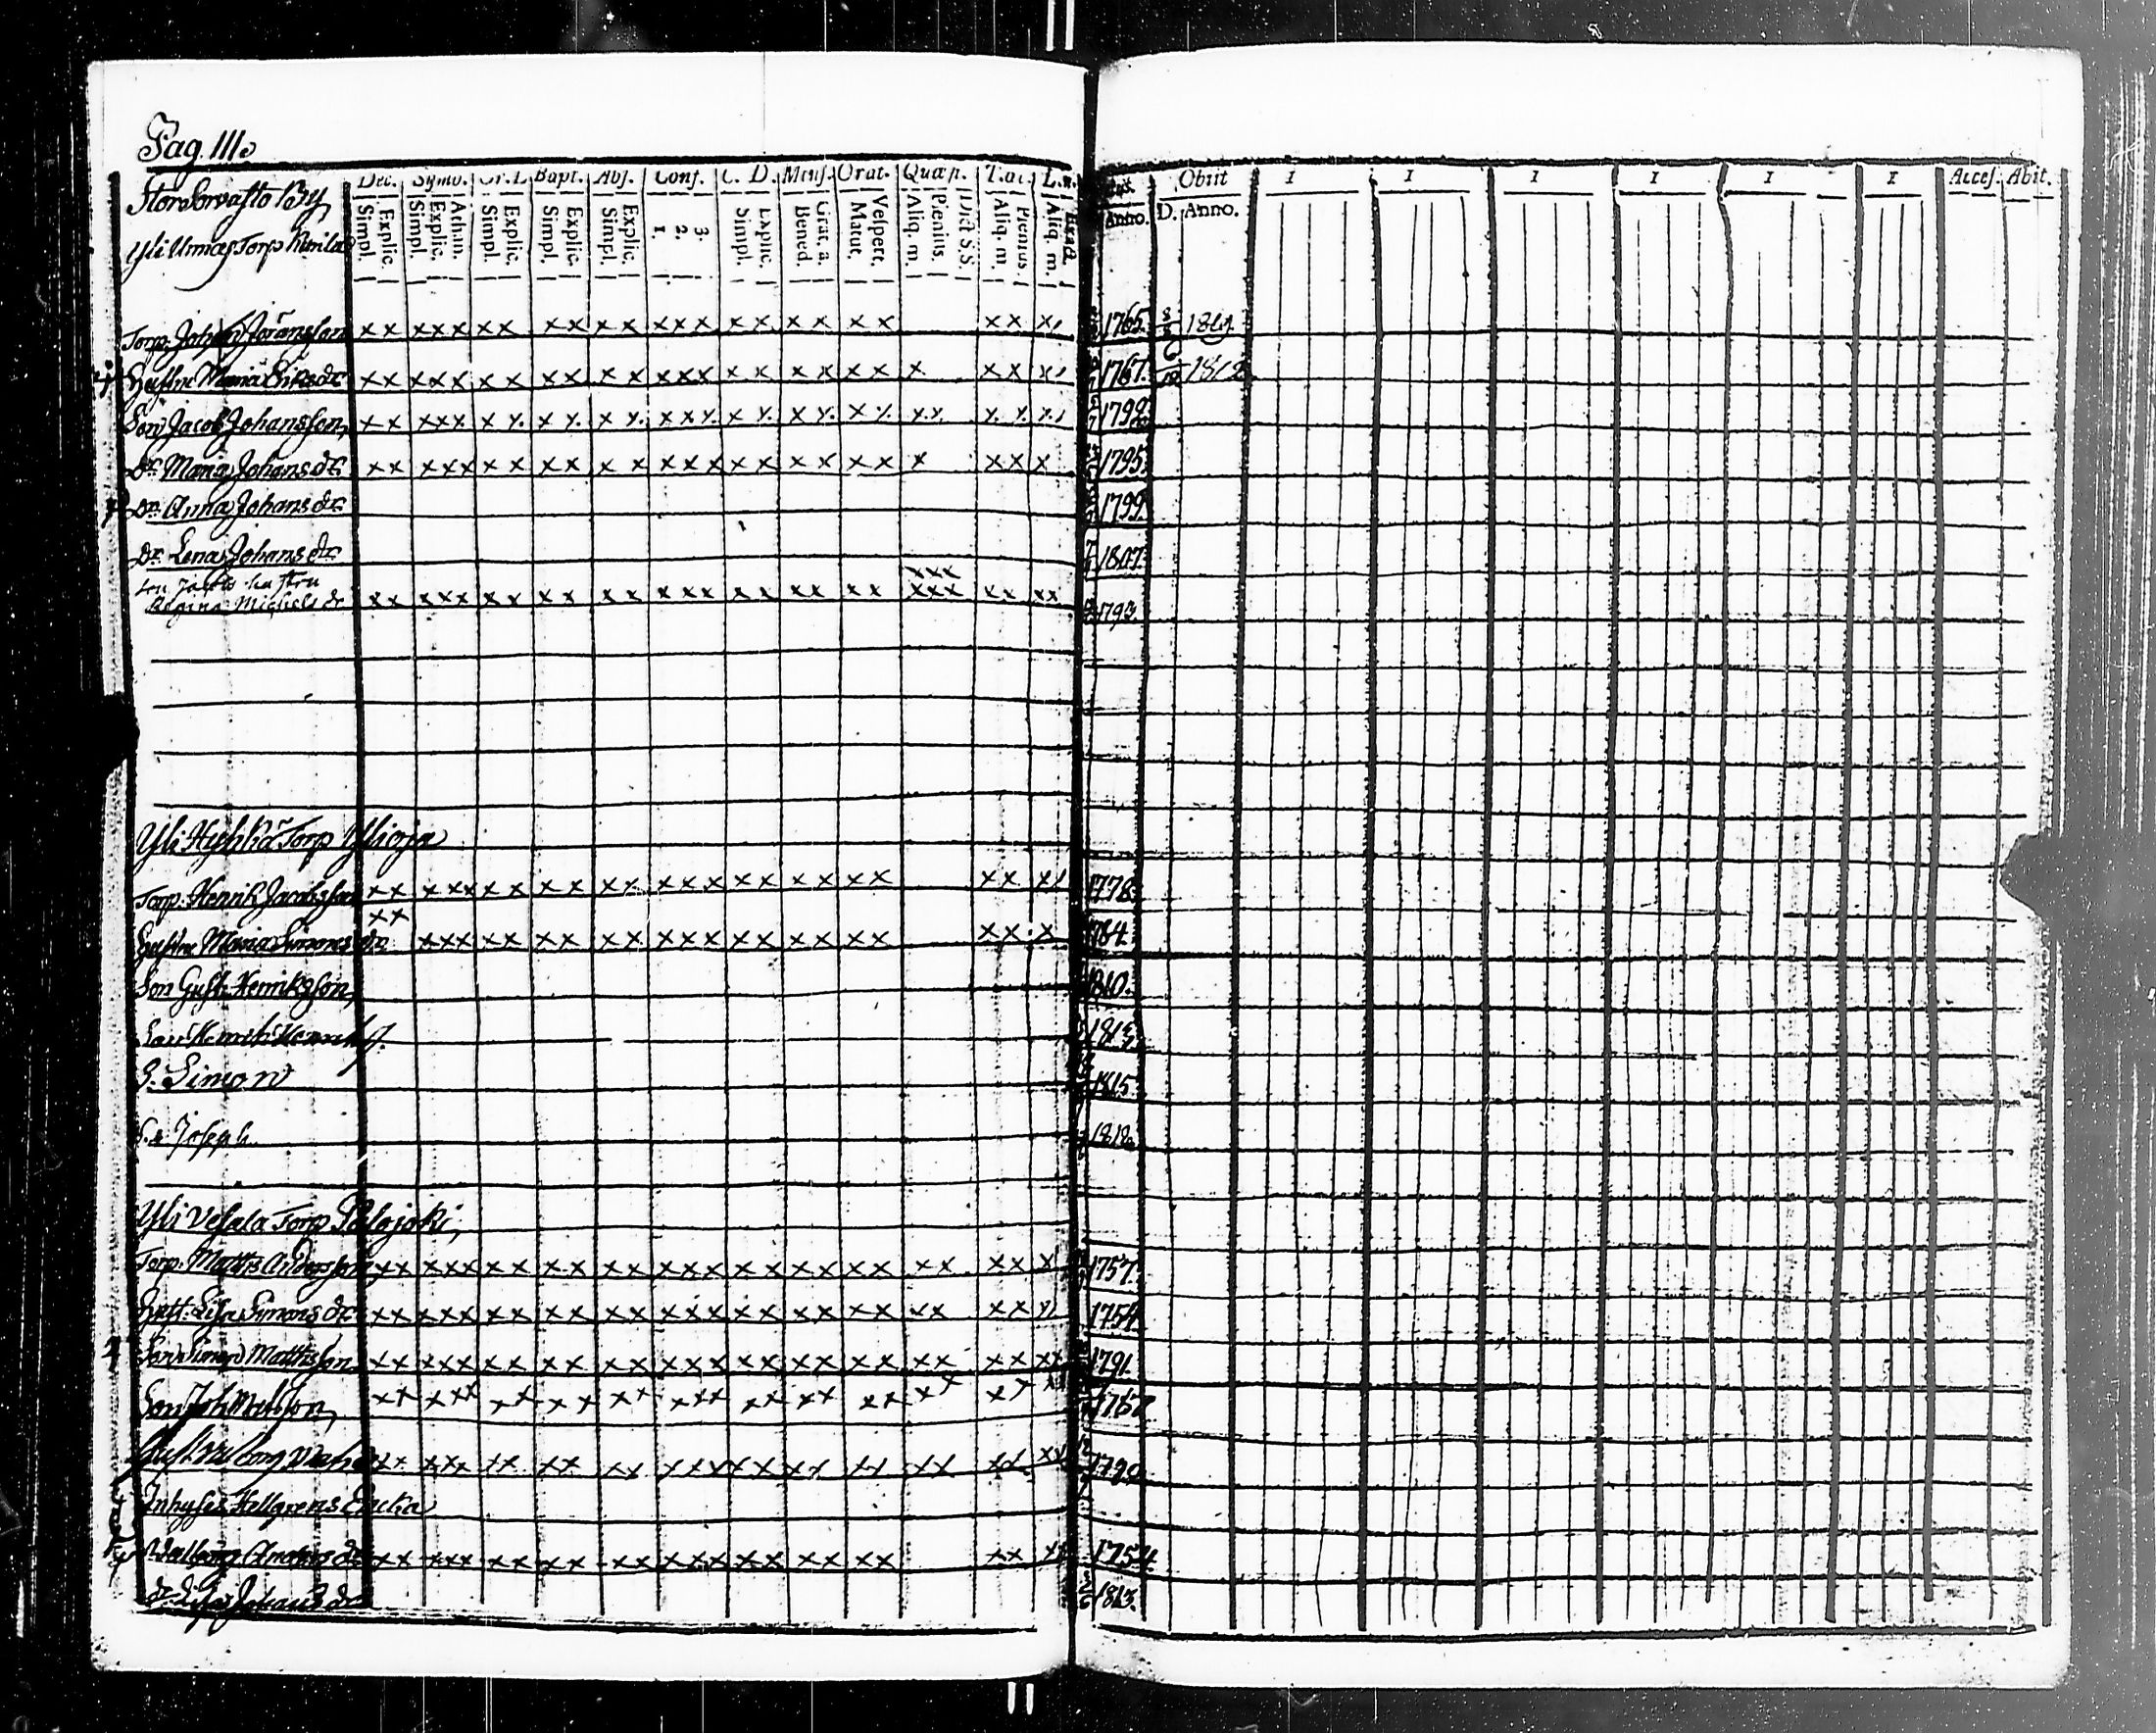 Pag. 111.
Stor Sorvasto By
Yli Torp
Dec. Symb. Or. D. Bapt. Abs. Conf. C. D. Mens. Orat. Quæst. T. æ. L. n. Obiit 1 1 1 1 1 1 Acces. Abit.
Simpl. Explic. Simpl. Explic. Athan. Simpl. Explic. Simpl. Explic. Simpl. Explic. 1. 2. 3. Simpl. Explic. Bened. Grat. a. Matut. Vespert. Aliq. m. Plenius. Dict S.S. Aliq. m. Plenius. Aliq. m. Exact Anno. D. Anno.
Torp. Johan Jöransson xx xxx xx xx xx xxx xx xx xx xx x 1765
Hustru Maria Eriksdr xx xxx xx xx xx xxx xx xx xx x xx x 1767. 1812
Son Jacob Johansson xx xxx xx xx xx xxx xx xx xx xx xx x 1792
Dr. Maria Johansdr. xx xxx xx xx xx xxx xx xx xx x xx x 1795
Dr. Anna Johansdr. 1799
Dr. Lena Johansdr. 1807.
Son Jacobs hustru xxx
Regina Michelsdr xx xxx xx xx xx xxx xx xx xx xxx xx xx 1793.
Yli Torp Ylioja
Torp. Henrik Jacobsson xx xxx xx xx xx xxx xx xx xx xx x 1778
Hustru Maria Simonsdr. xx xxx xx xx xx xxx xx xx xx xx x 1784.
Son Gust. Henriksson 1810.
Son Henrik Henriks. 1813
S. Simon 1815
S. Joseph 1818
Yli Vesala Torp Palojoki
Torp. Matts Andersson xx xxx xx xx xx xxx xx xx xx xx xx x 1757.
Hust. Lisa Simonsdr. xx xxx xx xx xx xxx xx xx xx xx xx x 1754
Son Simon Mattsson xx xxx xx xx xx xxx xx xx xx xx xx xx 1791.
Son Joh Matsson xx xxx xx xx xx xxx xx xx xx xx xx 1787
Hustru xx xxx xx xx xx xxx xx xx xx xx xx xx 1790
Inhyses Hellgrens Enckia
Walborg xx xxx xx xx xx xxx xx xx xx xx 1754
dr. Lisa Johansdr 1813.